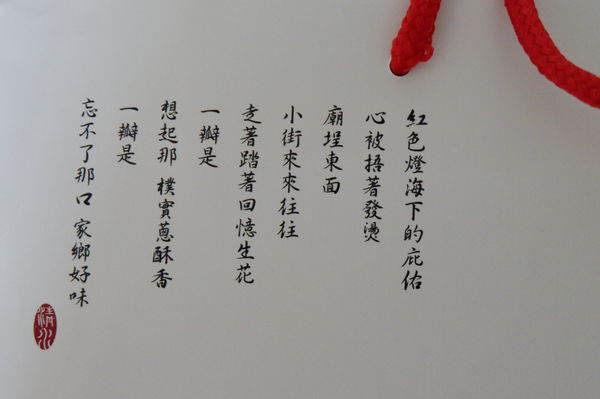 紅色燈海下的庇佑
心被捂著發燙
廟埕東面
小街來來往往
走著踏著回憶生花
一瓣是
想起那 樸實蔥酥香
一瓣是
忘不了那口 家鄉好味
清水